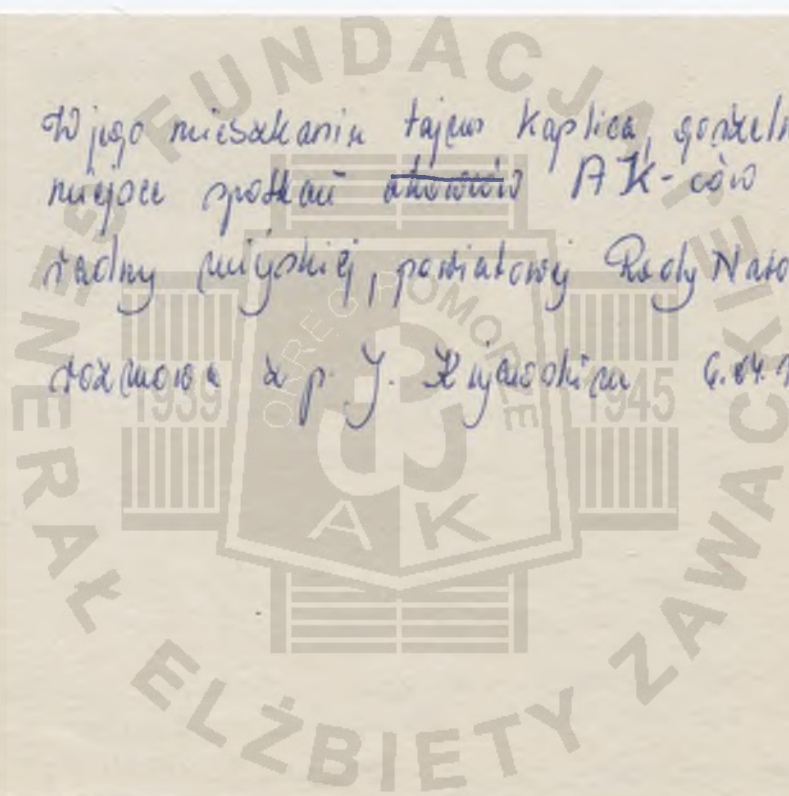 W jego mieszkaniu tajna kaplica, gorzeln
miejsce spotkań akowców AK-ców
radny miejskiej, powiatowej Rady Naro
rozmowa z p. J. Kujawskim 6.04.1
FUNDACJA GENERAŁ ELŻBIETY ZAWACKIEJ
OKRĘG POMORZE
1939 1945
AK